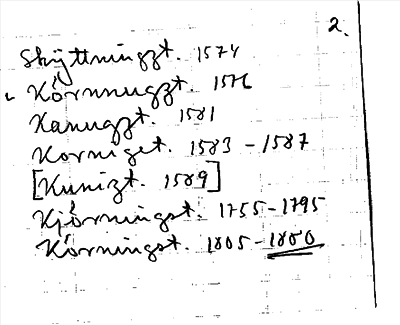 2.
Skÿttningzt. 1574
Körnnugzt. 1576
Kanugzt. 1581
Korniget. 1583 - 1587
[Kunizt. 1589]
Kjörningst. 1755-1795
Körningst. 1805-1860